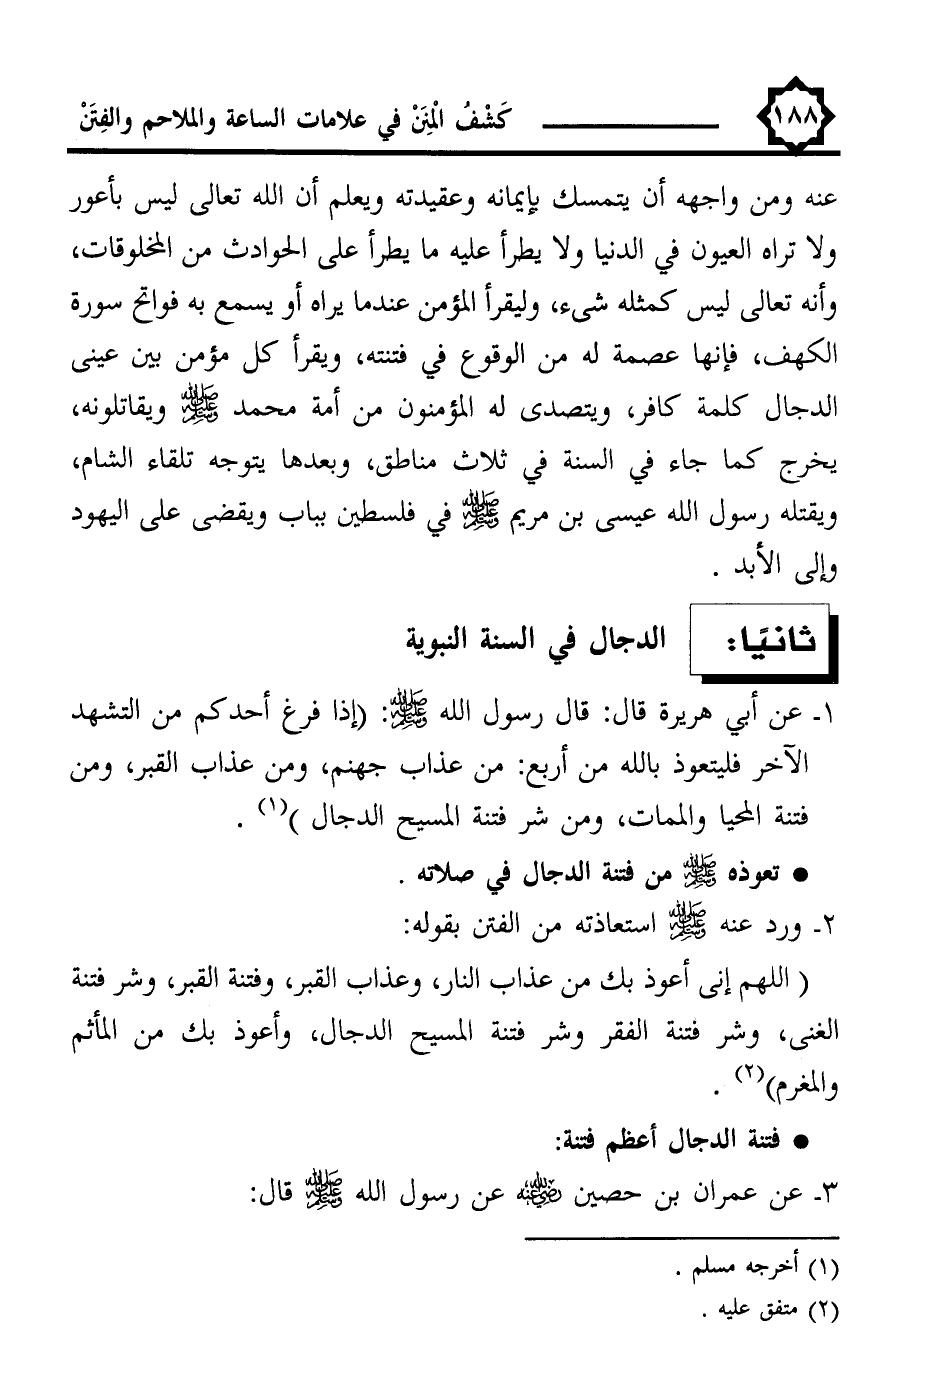 ١٨٨ كَشْفُ الْمِنَنْ في علامات الساعة والملاحم والفِتَنْ
عنه ومن واجهه أن يتمسك بإيمانه وعقيدته ويعلم أن الله تعالى ليس بأعور
ولا تراه العيون في الدنيا ولا يطرأ عليه ما يطرأ على الحوادث من المخلوقات،
وأنه تعالى ليس كمثله شىء، وليقرأ المؤمن عندما يراه أو يسمع به فواتح سورة
الكهف، فإنها عصمة له من الوقوع في فتنته، ويقرأ كل مؤمن بين عينى
الدجال كلمة كافر، ويتصدى له المؤمنون من أمة محمد ﷺ ويقاتلونه،
يخرج كما جاء في السنة في ثلاث مناطق، وبعدها يتوجه تلقاء الشام،
ويقتله رسول الله عيسى بن مريم ﷺ في فلسطين بباب ويقضى على اليهود
وإلى الأبد .
ثانيًا: الدجال في السنة النبوية
١ـ عن أبي هريرة قال: قال رسول الله ﷺ: (إذا فرغ أحدكم من التشهد
الآخر فليتعوذ بالله من أربع: من عذاب جهنم، ومن عذاب القبر، ومن
فتنة المحيا والممات، ومن شر فتنة المسيح الدجال )(١) .
● تعوذه ﷺ من فتنة الدجال في صلاته .
٢ـ ورد عنه ﷺ استعاذته من الفتن بقوله:
( اللهم إنى أعوذ بك من عذاب النار، وعذاب القبر، وفتنة القبر، وشر فتنة
الغنى، وشر فتنة الفقر وشر فتنة المسيح الدجال، وأعوذ بك من المأثم
والمغرم)(٢) .
● فتنة الدجال أعظم فتنة:
٣ـ عن عمران بن حصين رضي الله عنه عن رسول الله ﷺ قال:
(١) أخرجه مسلم .
(٢) متفق عليه .